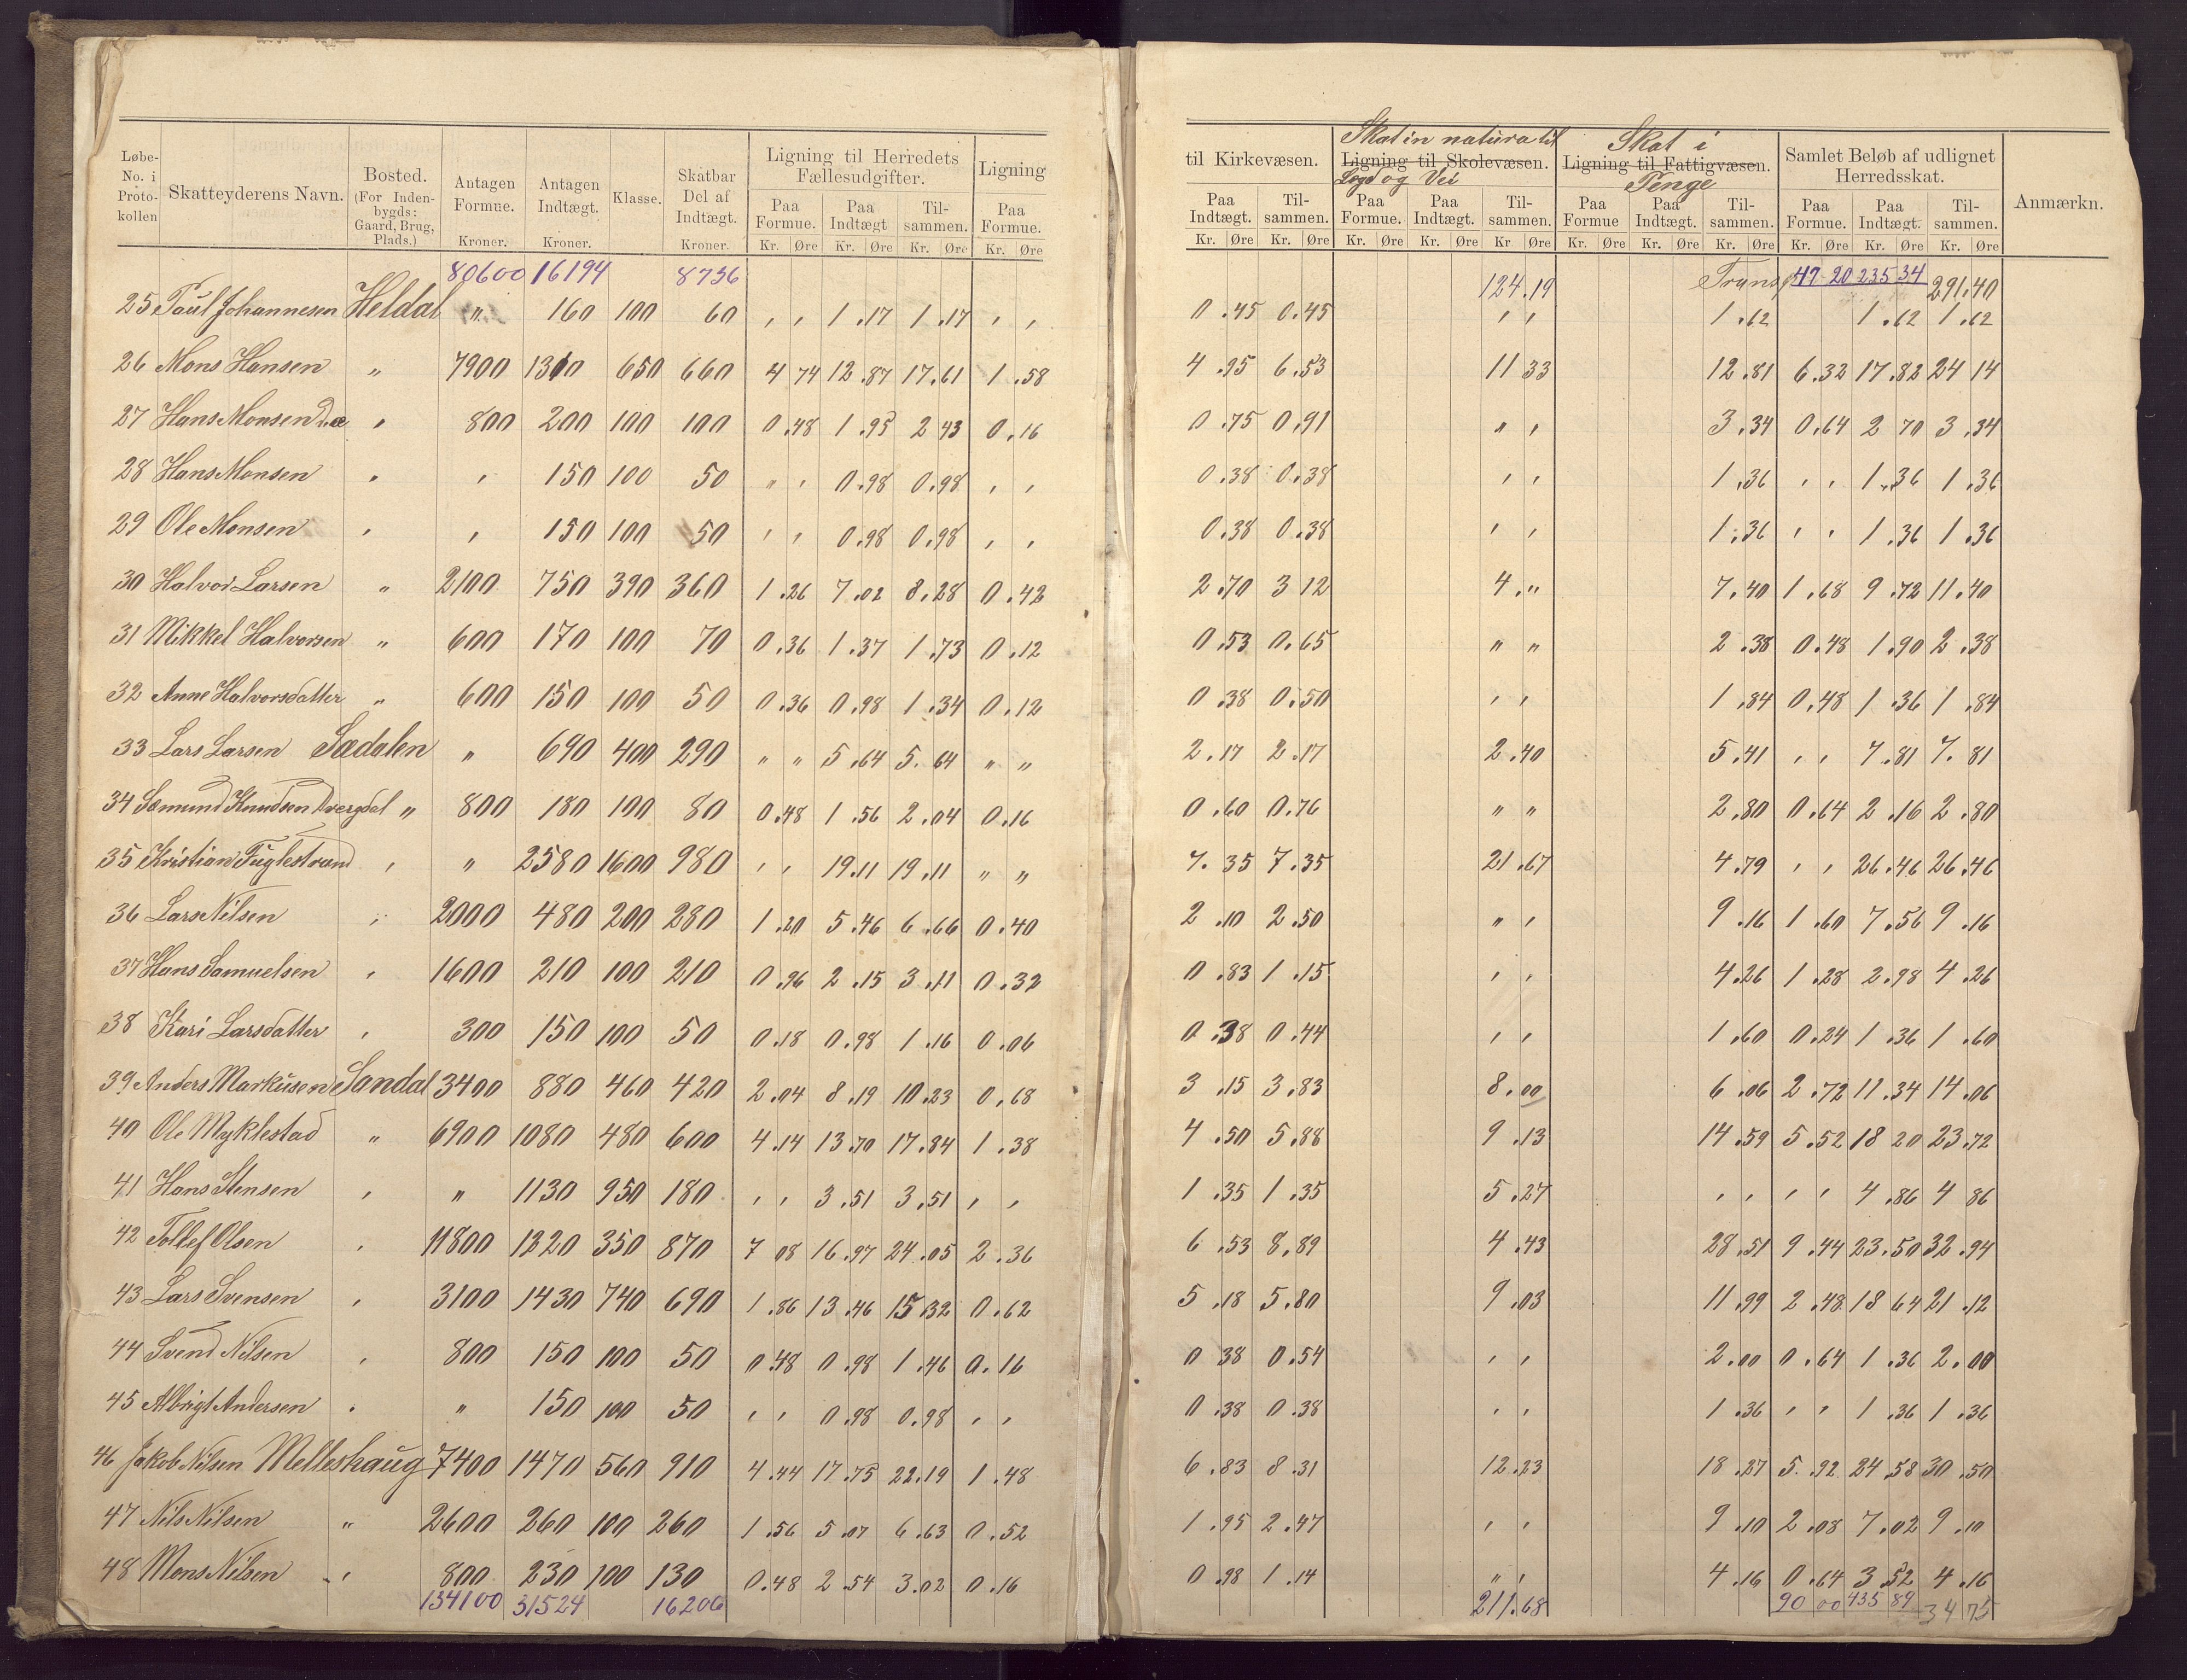 Løbe-No. i Proto-kollen | Skatteyderens Navn. | Bosted. (For Inden-bygds: Gaard, Brug, Plads.) | Antagen Formue. Kroner. | Antagen Indtægt. Kroner. | Klasse. | Skatbar Del af Indtægt. Kroner. | Ligning til Herredets Fællesudgifter. Paa Formue. Kr. Øre | Paa Indtægt Kr. Øre | Til-sammen. Kr. Øre | Ligning Paa Formue. Kr. Øre | til Kirkevæsen. Paa Indtægt. Kr. Øre | Til-sammen. Kr. Øre | Skat in natura til Ligning til Skolevæsen. Lægd og Vei Paa Formue. Kr. Øre | Paa Indtægt. Kr. Øre | Til-sammen. Kr Øre | Skat i Ligning til Fattigvæsen. Penge Paa Formue Kr. Øre | Paa Indtægt. Kr. Øre | Til-sammen. Kr. Øre | Samlet Beløb af udlignet Herredsskat. Paa Formue. Kr. Øre | Paa Indtægt. Kr. Øre | Til-sammen. Kr. Øre | Anmærkn.
80600 16194 8736 124.19 Transp 47 20 235 34 291.40
25 Paul Johannesen Heldal " 160 100 60 , , 1.17 1.17 , , 0.45 0.45 , , 1.62 1.62 1.62
26 Mons Hansen " 7900 1310 650 660 4 74 12.87 17.61 1.58 4.95 6.53 11 33 12.81 6.32 17.82 24 14
27 Hans Monsen " 800 200 100 100 0.48 1.95 2 43 0.16 0.75 0.91 " , 3.34 0.64 2 70 3.34
28 Hans Monsen " , 150 100 50 " , 0.98 0.98 , , 0.38 0.38 , , 1.36 , , 1.36 1.36
29 Ole Monsen , , 150 100 50 , , 0.98 0.98 , , 0.38 0.38 , , 1.36 , , 1.36 1.36
30 Halvor Larsen " 2100 750 390 360 1.26 7.02 8.28 0.42 2.70 3 12 4." 7.40 1.68 9.72 11.40
31 Mikkel Halvorsen " 600 170 100 70 0.36 1.37 1.73 0.12 0.53 0.65 " " 2.38 0.48 1.90 2.38
32 Anne Halvorsdatter " 600 150 100 50 0.36 0.98 1.34 0.12 0.38 0.50 , , 1.84 0.48 1.36 1.84
33 Lars Larsen Sædalen " 690 400 290 " " 5.64 5.64 " " 2.17 2.17 2.40 5.41 , , 7.81 7.81
34 Sæmund Knudsen Dvergdal " 800 180 100 80 0.48 1.56 2.04 0.16 0.60 0.76 " " 2.80 0.64 2.16 2.80
35 Kristian Fuglestrand , " 2580 1600 980 , , 19.11 19.11 " " 7.35 7.35 21.67 4.79 , , 26.46 26.46
36 Lars Nilsen , 2000 480 200 280 1.20 5.46 6.66 0.40 2.10 2.50 " , 9.16 1.60 7.56 9.16
37 Hans Samuelsen , 1600 210 100 210 0.96 2.15 3.11 0.32 0.83 1.15 , , 4.26 1.28 2.98 4.26
38 Kari Larsdatter , 300 150 100 50 0.18 0.98 1.16 0.06 0.38 0.44 , , 1.60 0.24 1.36 1.60
39 Anders Markusen Sandal 3400 880 460 420 2.04 8.19 10.23 0.68 3.15 3.83 8.00 6.06 2.72 11.34 14.06
40 Ole Myklestad " 6900 1080 480 600 4.14 13.70 17.84 1.38 4.50 5.88 9.13 14.59 5.52 18 20 23.72
41 Hans Stensen , " 1130 950 180 , , 3.51 3.51 , , 1.35 1.35 5.27 , , , , 4.86 4 86
42 Tollef Olsen , 11800 1220 350 870 7 08 16.97 24.05 2.36 6.53 8.89 4.43 28.51 9.44 23.50 32.94
43 Lars Svensen , 3100 1430 740 690 1.86 13.46 15 32 0.62 5.18 5.80 9.03 11.99 2.48 18 64 21.12
44 Svend Nilsen , 800 150 100 50 0.48 0.98 1.46 0.16 0 38 0.54 , , 2.00 0.64 1.36 2.00
45 Albrigt Andersen , " 150 100 50 , , 0.98 0.98 , , 0.38 0.38 , , 1.36 , , 1.36 1.36
46 Jakob Nilsen Melleshaug 7400 1470 560 910 4.44 17.75 22.19 1.48 6.83 8.31 12.23 18.27 5.92 24.58 30.50
47 Nils Nilsen " 2600 260 100 260 1.56 5.07 6.63 0.52 1.95 2.47 , , 9.10 2.08 7.02 9.10
48 Mons Nilsen , 800 230 100 130 0.48 2.54 3.02 0.16 0.98 1.14 " , 4.16 0.64 3.52 4.16
134100 31524 16206 211.68 90 00 435 89 34 75